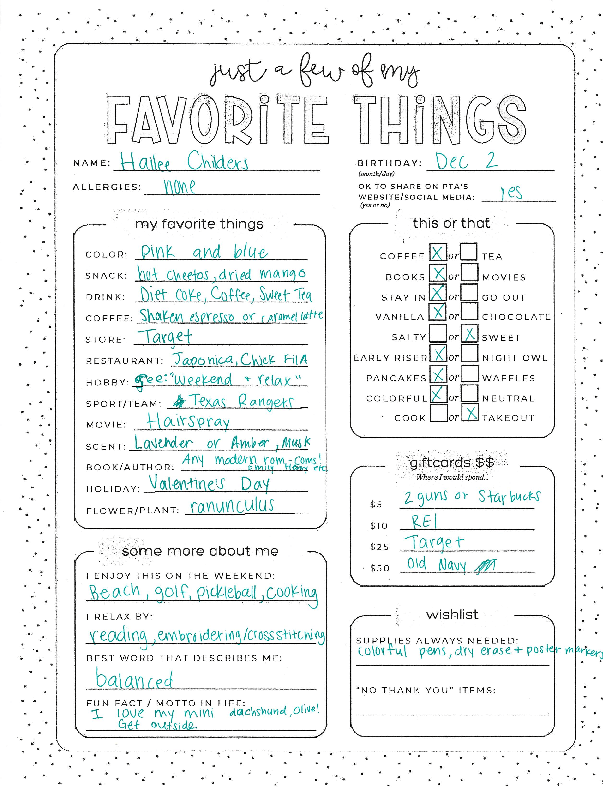 just a few of my
FAVORITE THINGS
NAME: Hailee Childers
ALLERGIES: none
BIRTHDAY: Dec 2
(month/day)
OK TO SHARE ON PTA'S
WEBSITE/SOCIAL MEDIA: yes
(yes or no)
my favorite things
COLOR: Pink and blue
SNACK: hot cheetos, dried mango
DRINK: Diet Coke, Coffee, Sweet Tea
COFFEE: Shaken espresso or caramel latte
STORE: Target
RESTAURANT: Japonica, Chick Fil A
HOBBY: See: "Weekend + relax"
SPORT/TEAM: Texas Rangers
MOVIE: Hairspray
SCENT: Lavender or Amber, Musk
BOOK/AUTHOR: Any modern rom-coms!
Emily Henry etc
HOLIDAY: Valentine's Day
FLOWER/PLANT: ranunculus
this or that
COFFEE X or TEA
BOOKS X or MOVIES
STAY IN X or GO OUT
VANILLA X or CHOCOLATE
SALTY or X SWEET
EARLY RISER X or NIGHT OWL
PANCAKES X or WAFFLES
COLORFUL X or NEUTRAL
COOK or X TAKEOUT
giftcards $$
Where I would spend...
$5 2 guns or Starbucks
$10 REI
$25 Target
$50 Old Navy
some more about me
I ENJOY THIS ON THE WEEKEND:
Beach, golf, pickleball, cooking
I RELAX BY:
reading, embroidering/crossstitching
BEST WORD THAT DESCRIBES ME:
balanced
FUN FACT / MOTTO IN LIFE:
I love my mini dachshund, Olive!
Get outside.
wishlist
SUPPLIES ALWAYS NEEDED:
colorful pens, dry erase + poster markers
"NO THANK YOU" ITEMS: